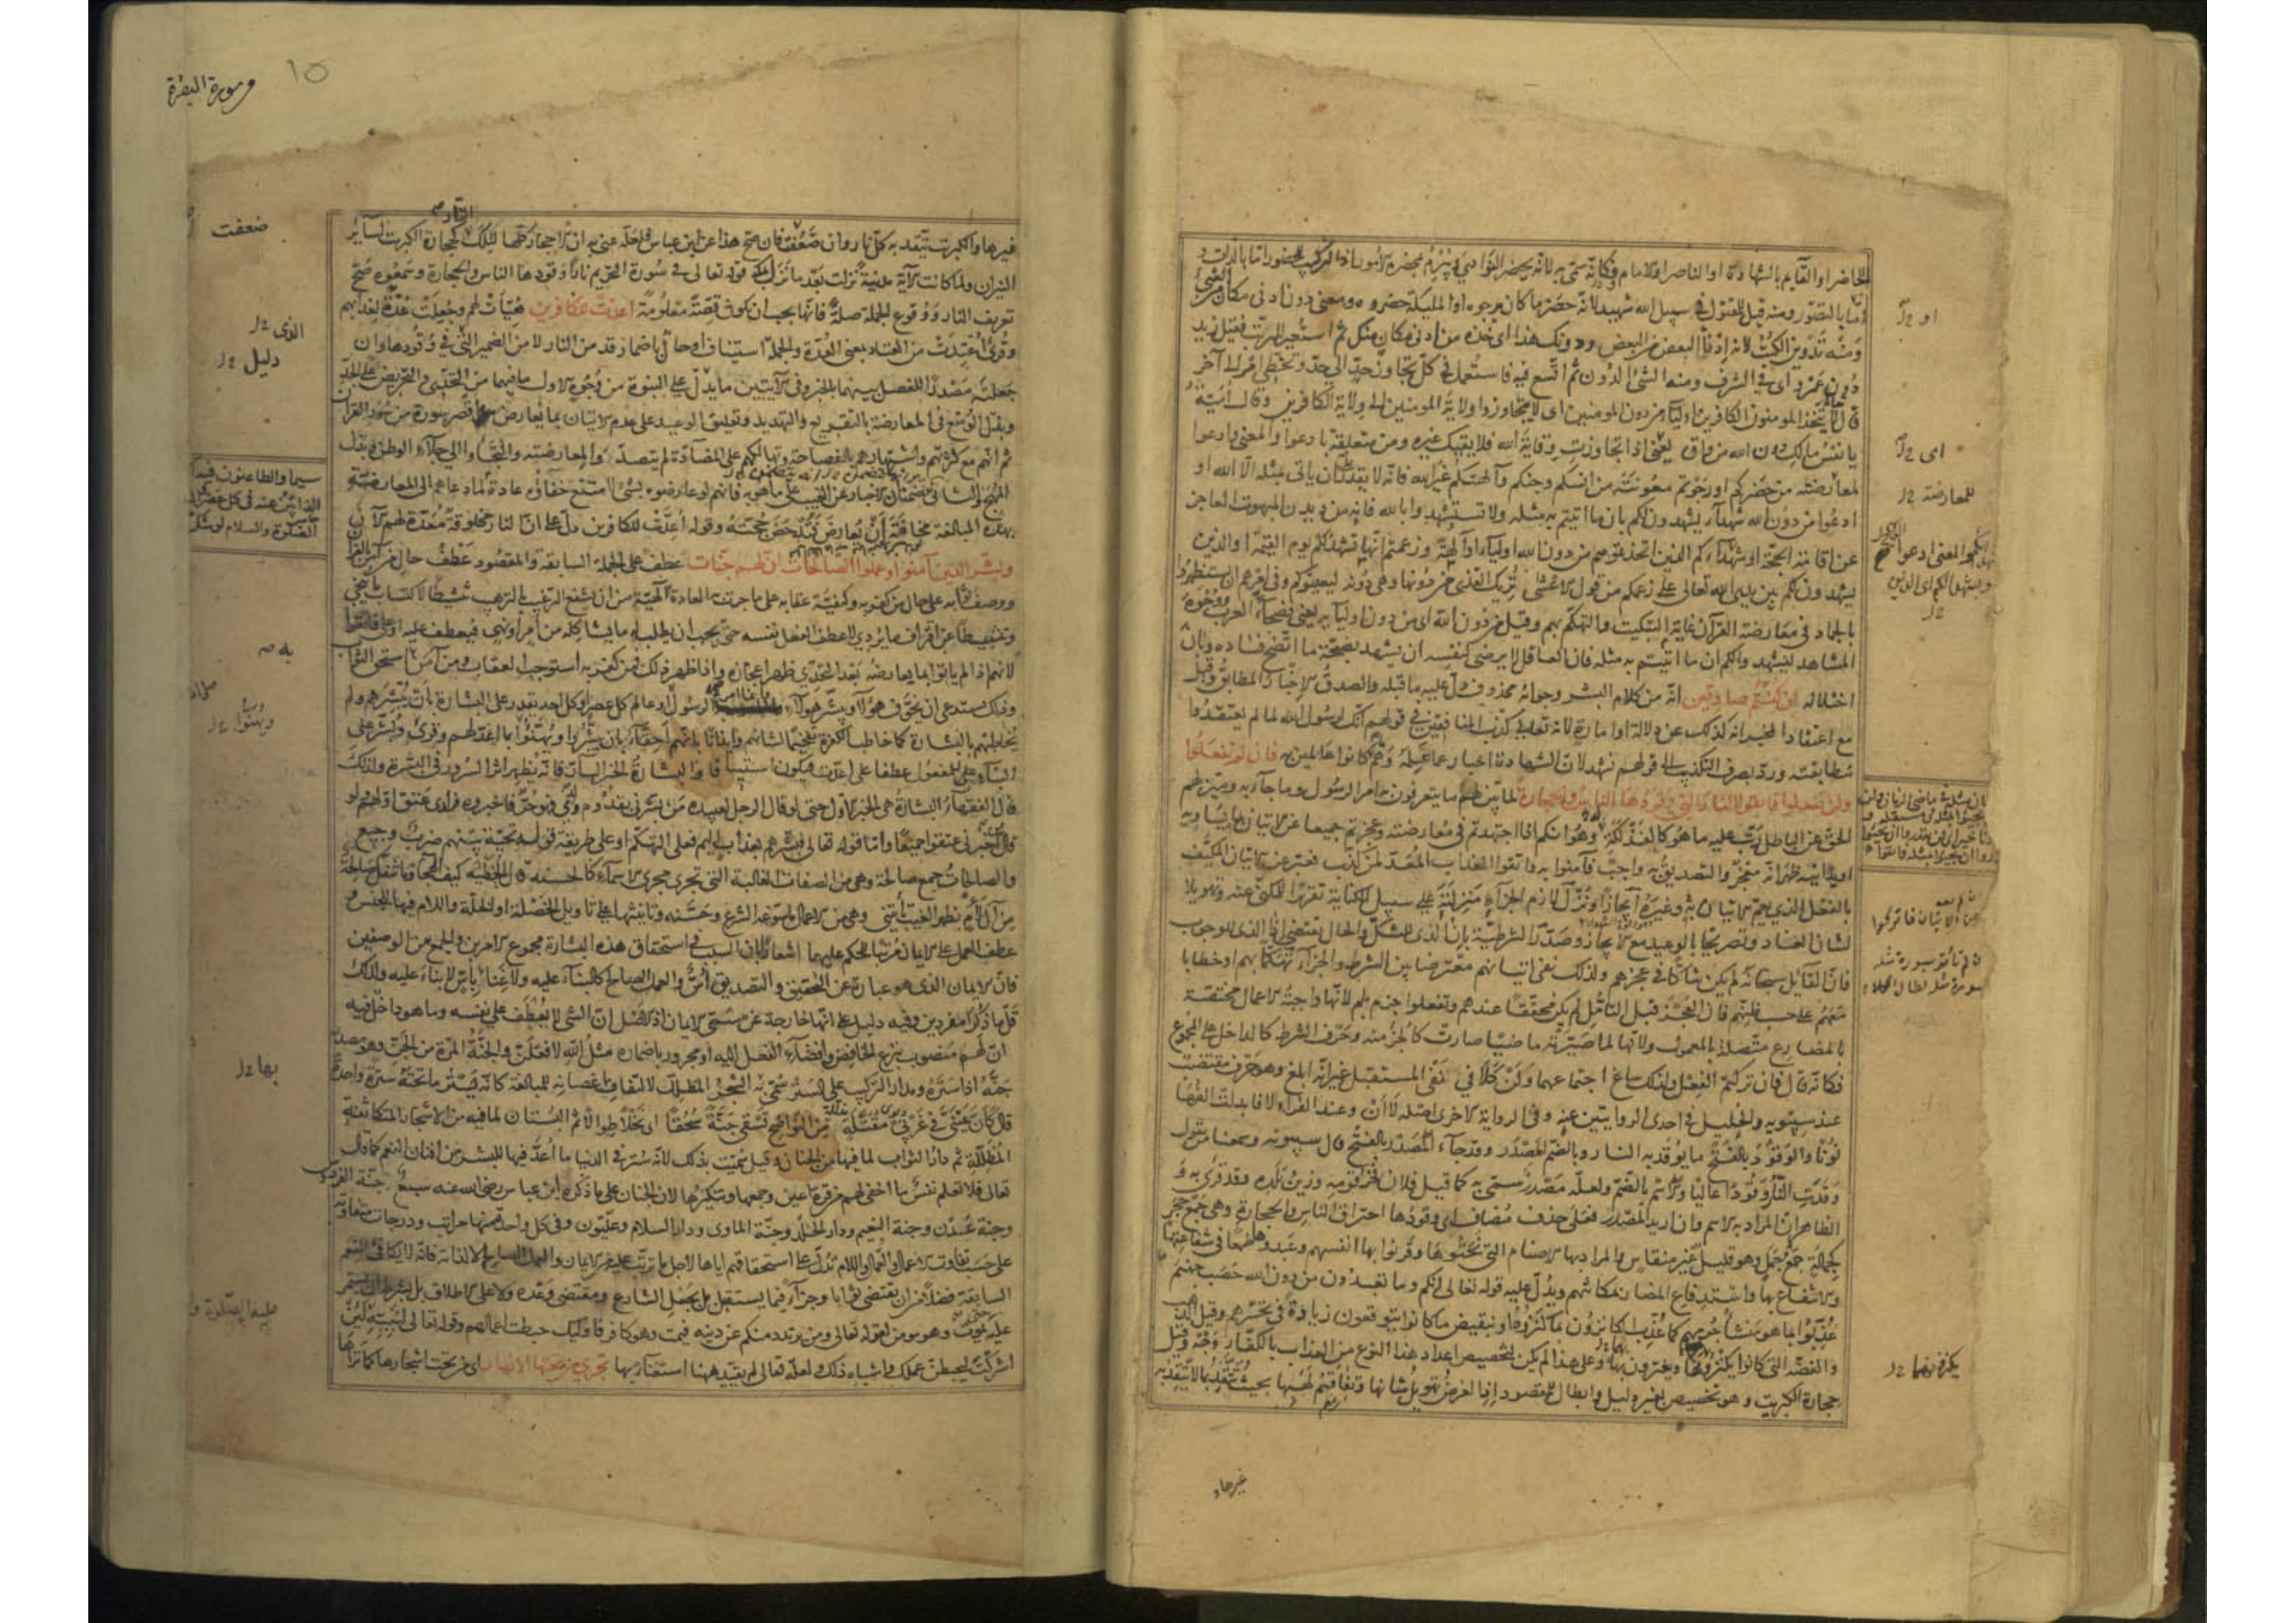 الحاضر او القايم بالشهادة او الناصر او الامام وكانه سمى به لانه يحضر النوادى ويبرم بمحضره الامور اذ التركيب للحضور اما بالذات و
اما بالتصور ومنه قيل للمقتول فى سبيل الله شهيد لانه حضر ما كان يرجوه او المليكة حضروه ومعنى دون ادنى مكان من الشئ
ومنه تدوين الكتب لانه ادناء البعض من البعض ودونك هذا اى خذه من ادنى مكان منك ثم استعير للرتب فقيل زيد
دون عمرو اى فى الشرف ومنه الشئ الدون ثم اتسع فيه فاستعمل فى كل تجاوز حد الى حد وتخطى امر الى آخر
قال لا يتخذ المومنون الكافرين اوليآ من دون المومنين اى لا يتجاوزوا ولاية المومنين الى ولاية الكافرين وقال امية
يا نفس مالك دون الله من واق يعنى اذا تجاوزت وقاية الله فلا يقيك غيره ومن متعلقة بادعوا والمعنى وادعوا
لمعارضته من حضركم او رجوتم معونته من انسكم وجنكم وآلهتكم غير الله فانه لا يقدر ان ياتى بمثله الا الله او
ادعوا من دون الله شهدآء يشهدون لكم بان ما اتيتم به مثله ولا تستشهدوا بالله فانه من ديدن المبهوت العاجز
عن اقامة الحجة او شهدآءكم الذين اتخذتموهم من دون الله اوليآء وآلهة وزعمتم انها تشهد لكم يوم القيمة او الذين
يشهدون لكم بين يدى الله تعالى على زعمكم من قول الاعشى تريك القذى من دونها وهى دونه ليعينوكم وفى امرهم ان يستظهروا
بالجماد فى معارضة القرآن غاية التبكيت والتهكم بهم وقيل من دون الله اى من دون اوليآيه يعنى فصحآء العرب ووجوه
المشاهد ليشهدوا لكم ان ما اتيتم به مثله فان العاقل لا يرضى لنفسه ان يشهد بصحة ما اتضح فساده وبان
اختلاله ان كنتم صادقين انه من كلام البشر وجوابه محذوف دل عليه ما قبله والصدق الاخبار المطابق وقيل
مع اعتقاد المخبر انه كذلك عن دلالة او امارة لانه تعالى كذب المنافقين فى قولهم انك لرسول الله لما لم يعتقدوا
مطابقته ورد بصرف التكذيب الى قولهم نشهد لان الشهادة اخبار عما علمه وهم ما كانوا عالمين به فان لم تفعلوا
ولن تفعلوا فاتقوا النار التى وقودها الناس والحجارة لما بين لهم ما يتعرفون به امر الرسول وما جآء به وميز لهم
الحق عن الباطل رتب عليه ما هو كالفذلكة له وهو انكم اذا اجتهدتم فى معارضته وعجزتم جميعا عن الاتيان بما يساويه
او يدانيه ظهر انه معجز والتصديق به واجب فآمنوا به واتقوا العذاب المعد لمن كذب فعبر عن الاتيان المكيف
بالفعل الذى يعم الاتيان به وغيره ايجازا ونزل لازم الجزآء منزلته على سبيل الكناية تقريرا للمكنى عنه وتهويلا
لشان العناد وتصريحا بالوعيد مع الايجاز وصدر الشرطية بان الذى للشك والحال تقتضى اذا الذى للوجوب
فان القآيل سبحانه لم يكن شاكا فى عجزهم ولذلك نفى اتيانهم معترضا بين الشرط والجزآء تهكما بهم او خطابا
معهم على حسب ظنهم فان العجز قبل التامل لم يكن محققا عندهم وتفعلوا جزم بلم لانها واجبة الاعمال مختصة
بالمضارع متصلة بالمعمول ولانها لما صيرته ماضيا صارت كالجزء منه وحرف الشرط كالداخل على المجموع
فكانه قال فان تركتم الفعل ولذلك ساغ اجتماعهما ولن كلا فى نفى المستقبل غير انه ابلغ وهو حرف مقتضب
عند سيبويه والخليل فى احدى الروايتين عنه وفى الرواية الاخرى اصله لا ان وعند الفرآء لا فابدلت الفها
نونا والوقود بالفتح ما يوقد به النار وبالضم المصدر وقد جآء المصدر بالفتح قال سيبويه وسمعنا من يقول
وقدت النار وقودا عاليا والاسم بالضم ولعله مصدر سمى به كما قيل فلان فخر قومه وزين بلده وقد قرئ به و
الظاهر ان المراد به الاسم وان اريد المصدر فعلى حذف مضاف اى وقودها احتراق الناس والحجارة وهى جمع حجر
كجمالة جمع جمل وهو قليل غير منقاس والمراد بها الاصنام التى نحتوها وقرنوا بها انفسهم وعبدوها طمعا فى شفاعتها
والانتفاع بها واستدفاع المضار بمكانتهم ويدل عليه قوله تعالى انكم وما تعبدون من دون الله حصب جهنم
عذبوا بما هو منشأ جرمهم كما عذب الكانزون بما كنزوه او بنقيض ما كانوا يتوقعون زيادة فى تحسرهم وقيل الذهب
والفضة التى كانوا يكنزونها ويغترون بها وعلى هذا لم يكن لتخصيص اعداد هذا النوع من العذاب بالكفار وجه وقيل
حجارة الكبريت وهو تخصيص بغير دليل وابطال للمقصود اذ الغرض تهويل شانها وتفاقم لهبها بحيث تتقد بما لا يتقد به
او
اى
للمعارضة
يكنزونهما
سورة البقرة
١٥
غيرها والكبريت تتقد به كل نار وان ضعفت فان صح هذا عن ابن عباس فلعله عنى به ان الاحجار كلها لتلك النار كحجارة الكبريت لسآير
النيران ولما كانت الآية مدنية نزلت بعد ما نزل بمكة قوله تعالى فى سورة التحريم نارا وقودها الناس والحجارة وسمعوه صح
تعريف النار ووقوع الجملة صلة فانها يجب ان تكون قصة معلومة اعدت للكافرين هيئت لهم وجعلت عدة لعذابهم
وقرئ اعتدت من العتاد بمعنى العدة والجملة استيناف او حال باضمار قد من النار لا من الضمير الذى فى وقودها وان
جعلته مصدرا للفصل بينهما بالخبر وفى الآيتين ما يدل على النبوة من وجوه الاول ما فيهما من التحدى والتحريض على الجد
وبذل الوسع فى المعارضة بالتقريع والتهديد وتعليق الوعيد على عدم الاتيان بما يعارض اقصر سورة من سور القرآن
ثم انهم مع كثرتهم واشتهارهم بالفصاحة وتهالكهم على المضادة لم يتصدوا لمعارضته والتجأوا الى جلآء الوطن وبذل
المهج والثانى تضمنهما الاخبار عن الغيب على ما هو به فانهم لو عارضوه بشئ لامتنع خفآؤه عادة لما دعاهم الى المعارضة
بهذه المبالغة مخافة ان يعارض فتدحض حجته وقوله اعدت للكافرين دل على ان النار مخلوقة معدة لهم الآن
وبشر الذين آمنوا وعملوا الصالحات ان لهم جنات عطف على الجملة السابقة والمقصود عطف حال من آمن بالقرآن
ووصف ثوابه على حال من كفر به وكيفية عقابه على ما جرت به العادة الالهية من ان يشفع الترغيب بالترهيب تنشيطا لاكتساب ما ينجى
وتثبيطا عن اقتراف ما يردى لا عطف الفعل نفسه حتى يجب ان يطلب له ما يشاكله من امر او نهى فيعطف عليه او على فاتقوا
لانهم اذا لم ياتوا بما يعارضه بعد التحدى ظهر اعجازه واذا ظهر ذلك فمن كفر به استوجب العقاب ومن آمن به استحق الثواب
وذلك يستدعى ان يخوف هؤلآء ويبشر هؤلآء وانما امر الرسول او عالم كل عصر او كل احد يقدر على البشارة بان يبشرهم ولم
يخاطبهم بالبشارة كما خاطب الكفرة تفخيما لشانهم وايذانا بانهم احقآء بان يبشروا ويهنئوا بما اعد لهم وقرئ وبشر على
البنآء للمفعول عطفا على اعدت فيكون استينافا والبشارة الخبر السار فانه يظهر اثر السرور فى البشرة ولذلك
قال الفقهآء البشارة هى الخبر الاول حتى لو قال الرجل لعبيده من بشرنى بقدوم ولدى فهو حر فاخبروه فرادى عتق اولهم ولو
قال من اخبرنى عتقوا جميعا واما قوله تعالى فبشرهم بعذاب اليم فعلى التهكم او على طريقة قوله تحية بينهم ضرب وجيع
والصالحات جمع صالحة وهى من الصفات الغالبة التى تجرى مجرى الاسمآء كالحسنة قال الحطيئة كيف الهجآء وما تنفك صالحة
من آل لأم بظهر الغيب تاتينى وهى من الاعمال ما سوغه الشرع وحسنه وتانيثها على تاويل الخصلة او الخلة واللام فيها للجنس و
عطف العمل على الايمان مرتبا للحكم عليهما اشعارا بان السبب فى استحقاق هذه البشارة مجموع الامرين والجمع بين الوصفين
فان الايمان الذى هو عبارة عن التحقيق والتصديق اس والعمل الصالح كالبنآء عليه ولا غنآء باس لا بناء عليه ولذلك
قل ما ذكرا مفردين وفيه دليل على انها خارجة عن مسمى الايمان اذ الاصل ان الشئ لا يعطف على نفسه وما هو داخل فيه
ان لهم منصوب بنزع الخافض وافضآء الفعل اليه او مجرور باضماره مثل الله لافعلن والجنة المرة من الجن وهو مصدر
جنه اذا ستره ومدار التركيب على الستر سمى به الشجر المظلل لالتفاف اغصانه للمبالغة كانه يستر ما تحته سترة واحدة
قال كان عينى فى غربى مقتلة من النواضح تسقى جنة سحقا اى نخلا طوالا ثم البستان لما فيه من الاشجار المتكاثفة
المظللة ثم دار الثواب لما فيها من الجنان وقيل سميت بذلك لانه ستر فى الدنيا ما اعد فيها للبشر من افنان النعم كما قال
تعالى فلا تعلم نفس ما اخفى لهم من قرة اعين وجمعها وتنكيرها لان الجنان على ما ذكره ابن عباس رضى الله عنه سبع جنة الفردوس
وجنة عدن وجنة النعيم ودار الخلد وجنة الماوى ودار السلام وعليون وفى كل واحدة منها مراتب ودرجات متفاوتة
على حسب تفاوت الاعمال والعمال واللام تدل على استحقاقهم اياها لاجل ما ترتب عليه من الايمان والعمل الصالح لا لذاته فانه لا يكافئ النعم
السابقة فضلا من ان يقتضى ثوابا وجزآء فيما يستقبل بل بجعل الشارع ومقتضى وعده ولا على الاطلاق بل بشرط ان يستمر
عليه حتى يموت وهو مومن لقوله تعالى ومن يرتدد منكم عن دينه فيمت وهو كافر فاوليك حبطت اعمالهم وقوله تعالى لنبيه لئن
اشركت ليحبطن عملك واشباه ذلك ولعله تعالى لم يقيد ههنا استغنآء بها تجرى من تحتها الانهار اى من تحت اشجارها كما تراها
ضعفت
الذى
دليل
به
ويهنئوا
بها